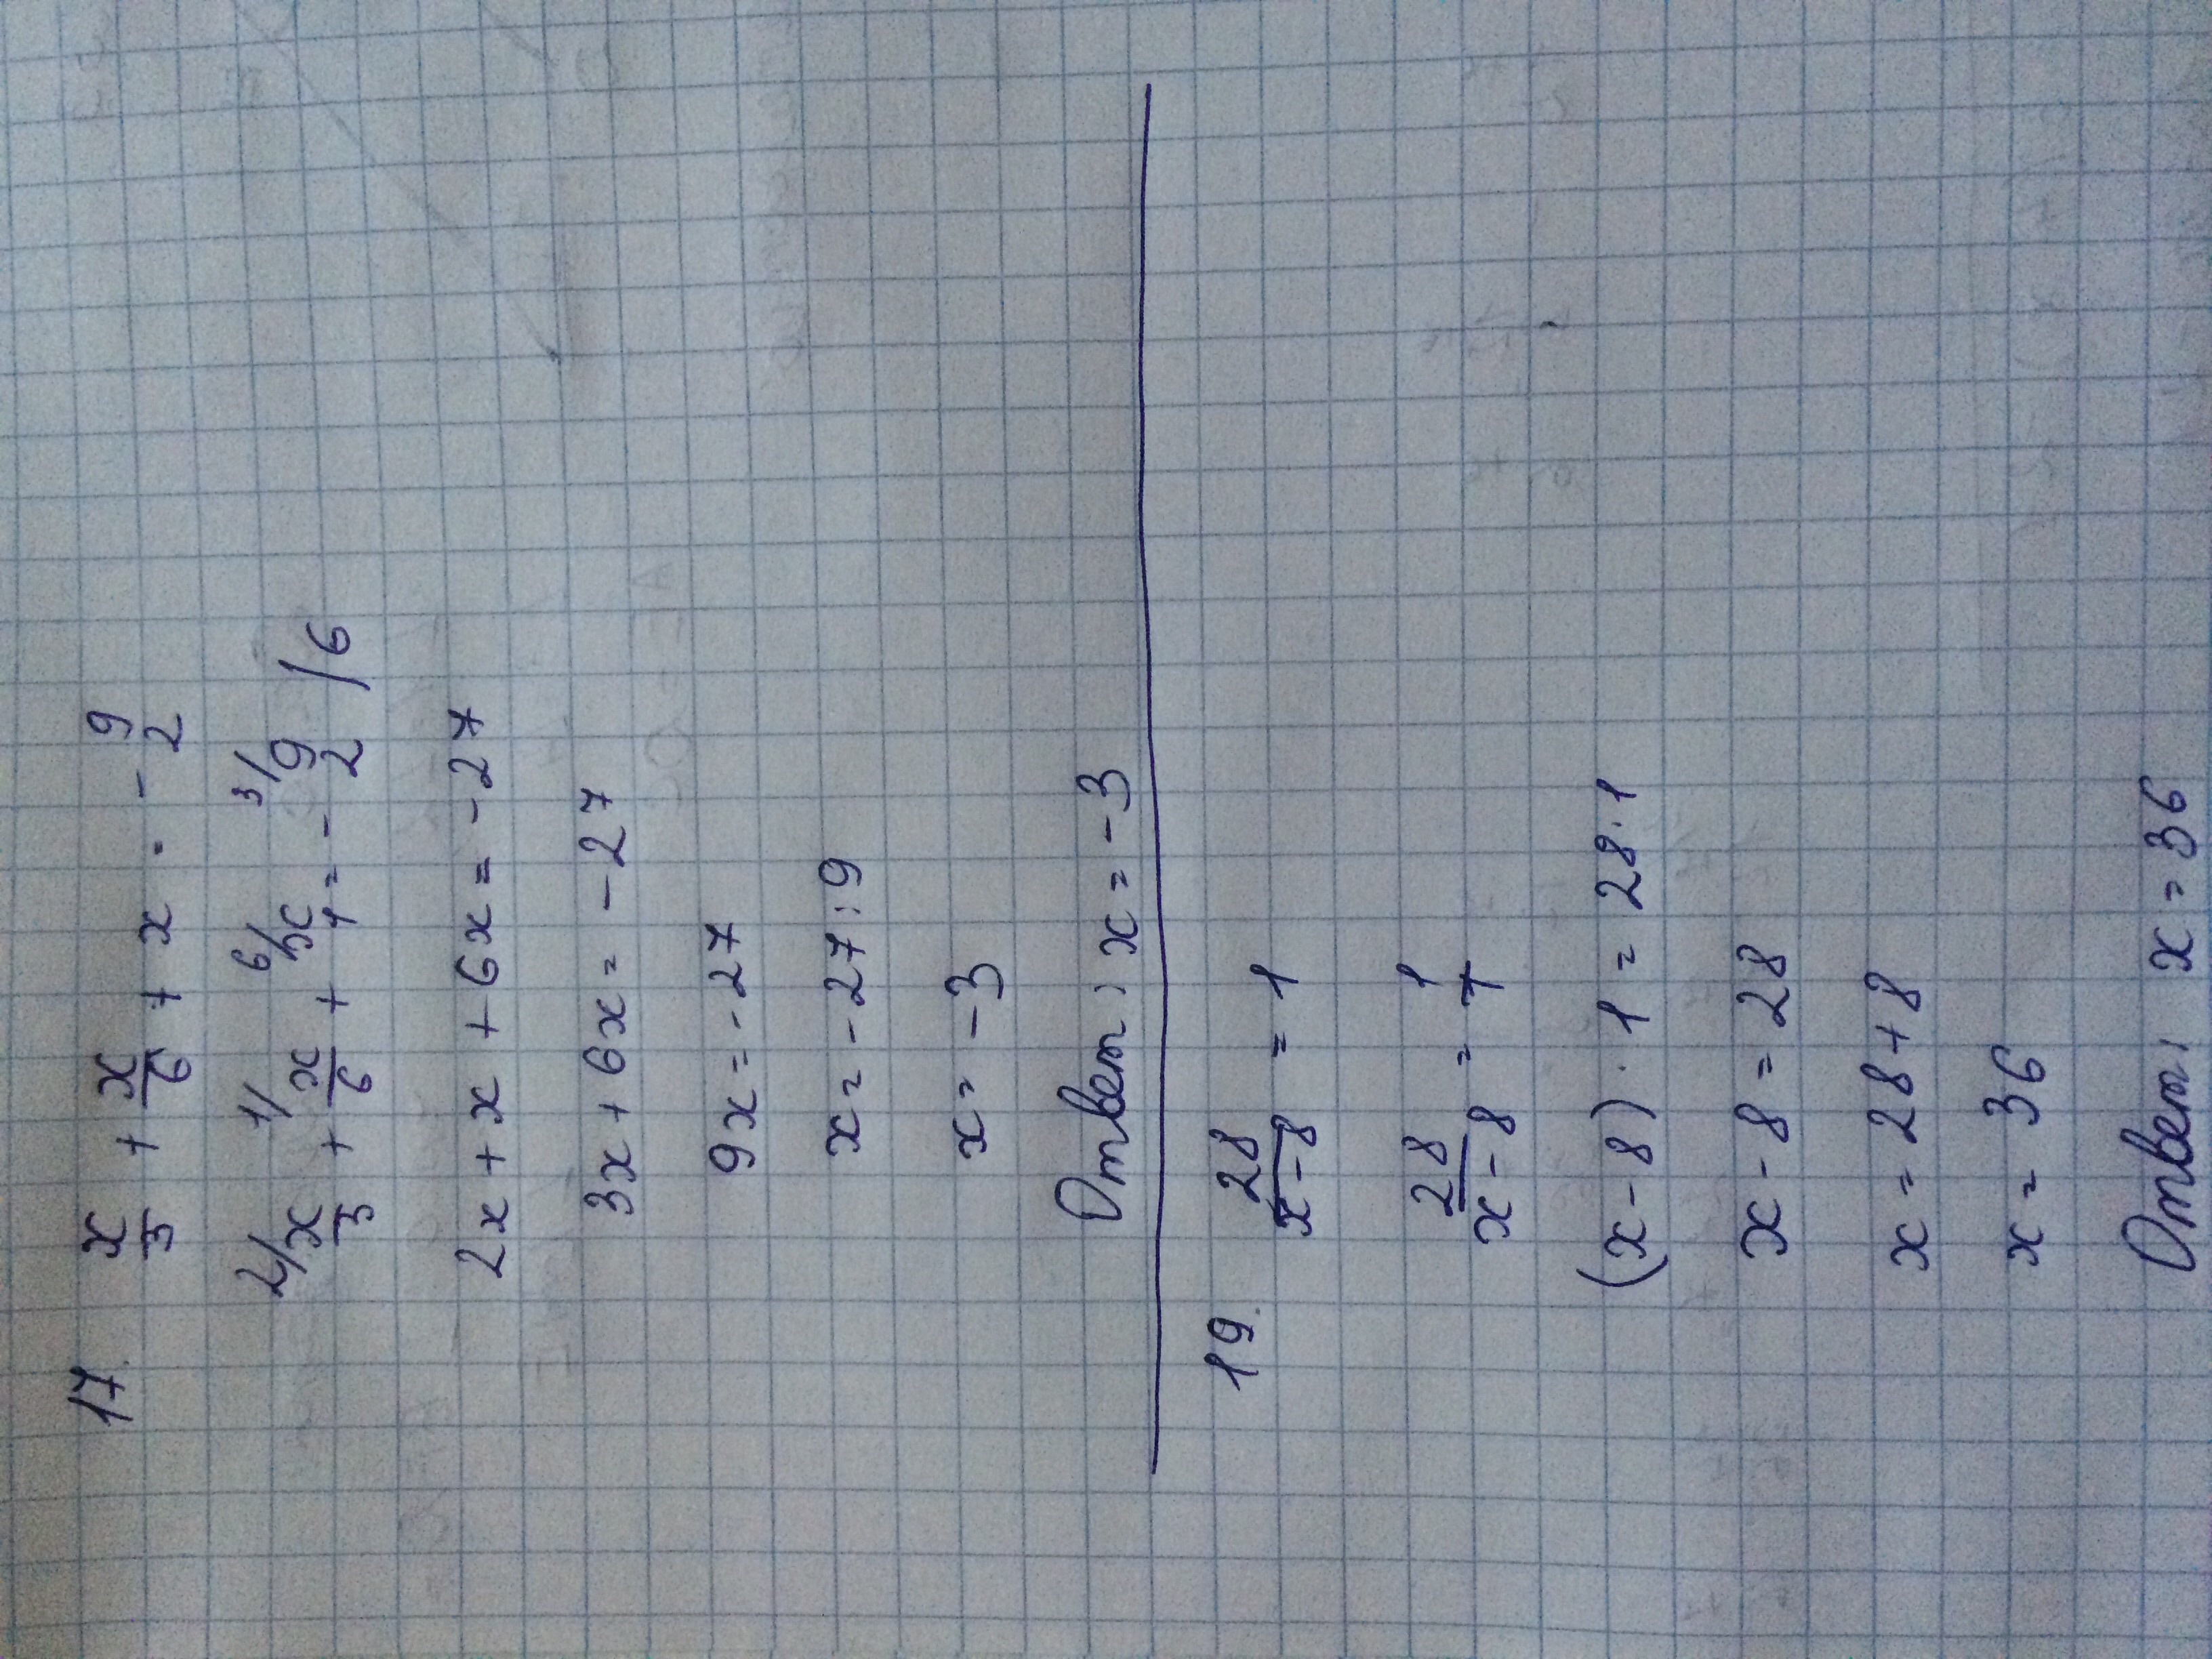 17. x/3 + x/6 + x = -9/2
2/ x/3 + 1/ x/6 + 6/ x/1 = - 3/ 9/2 | 6
2x + x + 6x = -27
3x + 6x = -27
9x = -27
x = -27 : 9
x = -3
Ответ: x = -3
19. 28/(x-8) = 1
28/(x-8) = 1/1
(x-8) · 1 = 28 · 1
x - 8 = 28
x = 28 + 8
x = 36
Ответ: x = 36